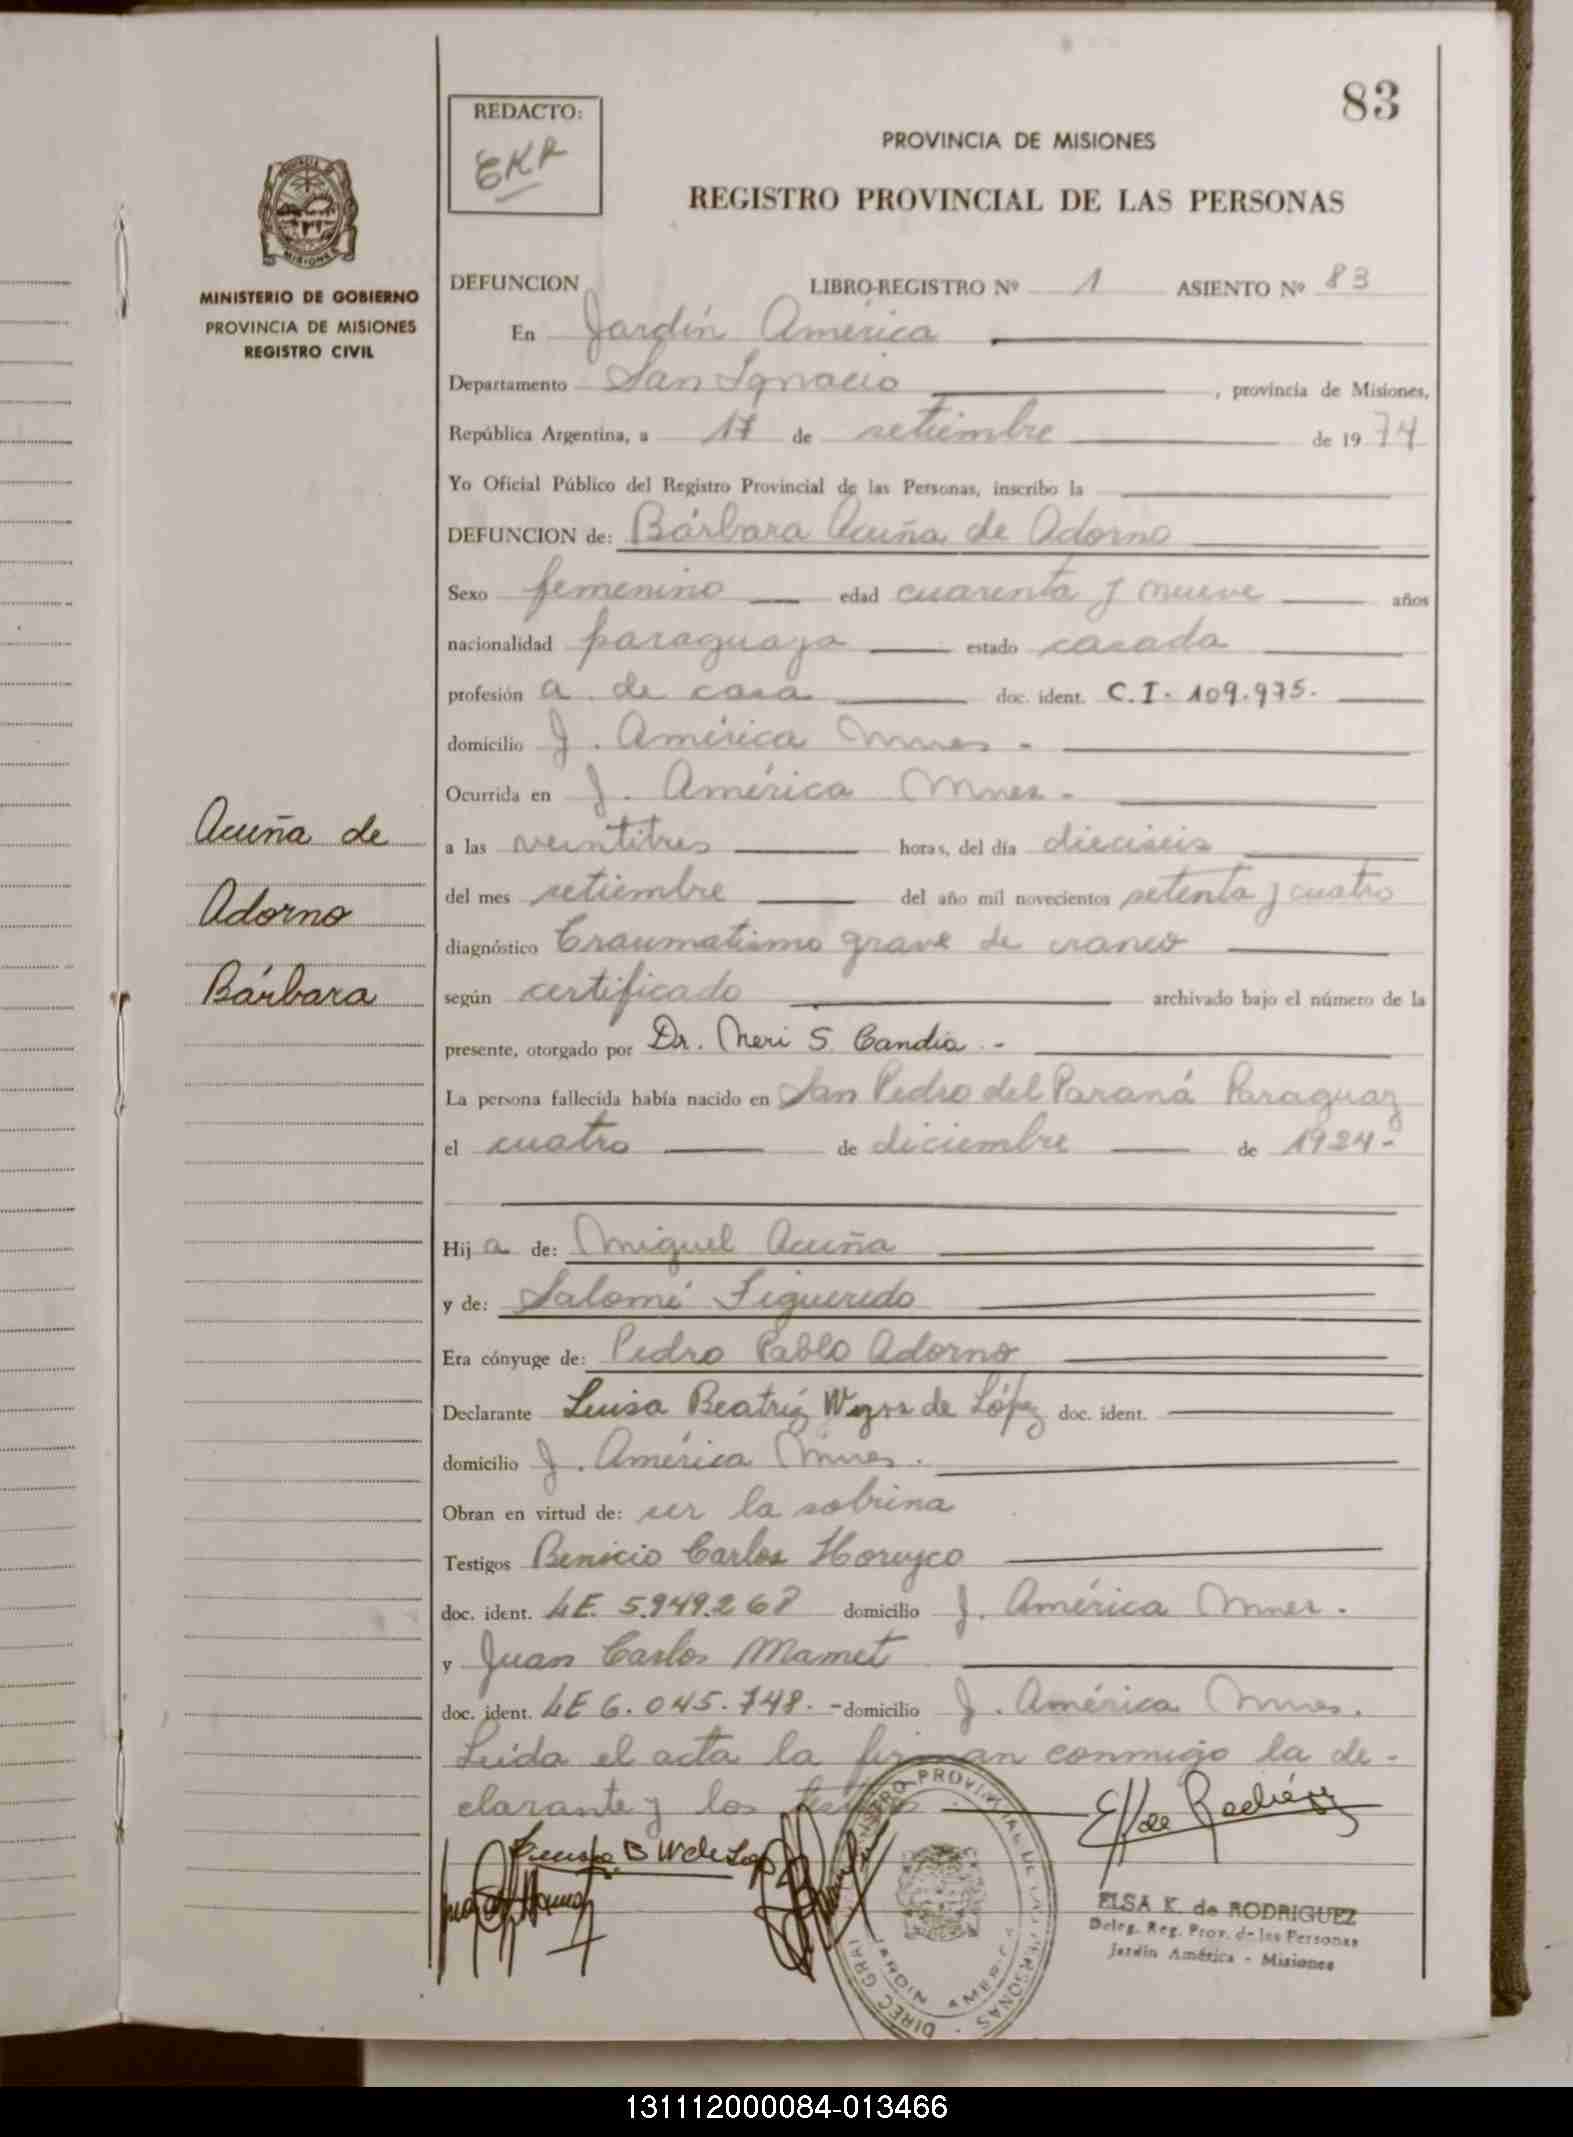 83
REDACTO:
EKR
PROVINCIA DE MISIONES
REGISTRO PROVINCIAL DE LAS PERSONAS
MISIONES
MINISTERIO DE GOBIERNO
PROVINCIA DE MISIONES
REGISTRO CIVIL
DEFUNCION LIBRO-REGISTRO Nº 1 ASIENTO Nº 83
En Jardín América
Departamento San Ignacio , provincia de Misiones,
República Argentina, a 17 de setiembre de 1974
Yo Oficial Público del Registro Provincial de las Personas, inscribo la
DEFUNCION de: Bárbara Acuña de Adorno
Sexo femenino edad cuarenta y nueve años
nacionalidad paraguaya estado casada
profesión a. de casa doc. ident. C.I. 109.975.
domicilio J. América Mnes -
Ocurrida en J. América Mnes. -
Acuña de
Adorno
Bárbara
a las veintitres horas, del día dieciseis
del mes setiembre del año mil novecientos setenta y cuatro
diagnóstico Traumatismo grave de craneo
según certificado archivado bajo el número de la
presente, otorgado por Dr. Neri S. Candia. -
La persona fallecida había nacido en San Pedro del Paraná Paraguay
el cuatro de diciembre de 1924-
Hija de: Miguel Acuña
y de: Salomé Figueredo
Era cónyuge de: Pedro Pablo Adorno
Declarante Luisa Beatríz de López doc. ident.
domicilio J. América Mnes.
Obran en virtud de: ser la sobrina
Testigos Benicio Carlos
doc. ident. LE. 5.949.268 domicilio J. América Mnes.
y Juan Carlos Mamet
doc. ident. LE 6.045.748. - domicilio J. América Mnes.
Leida el acta la firman conmigo la de-
clarante y los testigos
ELSA K. de RODRIGUEZ
Deleg. Reg. Prov. de las Personas
Jardín América - Misiones
JARDIN AMERICA
131112000084-013466